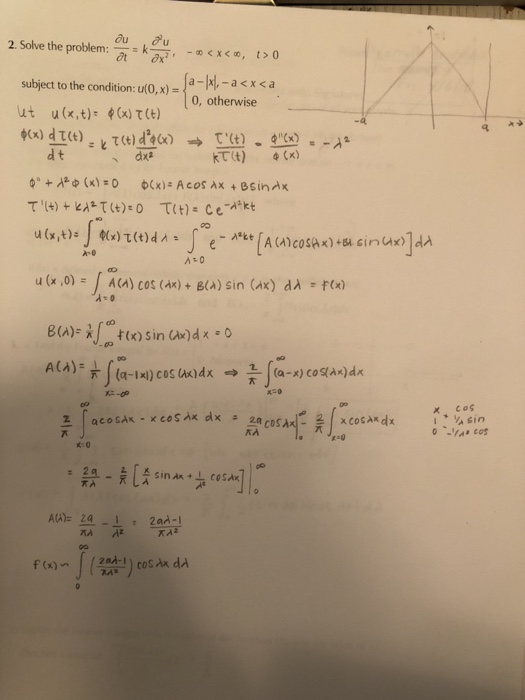 2. Solve the problem: ∂u/∂t = k ∂²u/∂x², -∞ < x < ∞, t > 0
subject to the condition: u(0, x) = {a - |x|, -a < x < a
0, otherwise
-a a x→
let u(x,t) = ϕ(x) τ(t)
ϕ(x) dτ(t)/dt = k τ(t) d²ϕ(x)/dx² ⇒ τ'(t)/kτ(t) = ϕ''(x)/ϕ(x) = -λ²
ϕ'' + λ²ϕ(x) = 0 ϕ(x) = A cos λx + B sin λx
τ'(t) + kλ²τ(t) = 0 τ(t) = Ce^(-λ²kt)
u(x,t) = ∫_{λ=0}^{∞} ϕ(x) τ(t) dλ = ∫_{λ=0}^{∞} e^(-λ²kt) [A(λ)cos(λx) + B(λ) sin(λx)] dλ
u(x,0) = ∫_{λ=0}^{∞} A(λ) cos(λx) + B(λ) sin(λx) dλ = f(x)
B(λ) = 1/π ∫_{-∞}^{∞} f(x) sin(λx) dx = 0
A(λ) = 1/π ∫_{x=-∞}^{∞} (a-|x|) cos(λx) dx ⇒ 2/π ∫_{x=0}^{∞} (a-x) cos(λx) dx
2/π ∫_{x=0}^{∞} a cos λx - x cos λx dx = 2a/πλ cos λx |_0^∞ - 2/π ∫_{x=0}^{∞} x cos λx dx
x cos
1 + 1/λ sin
0 - -1/λ² cos
= 2a/πλ - 2/π [x/λ sin λx + 1/λ² cos λx] |_0^∞
A(λ) = 2a/πλ - 1/λ² = 2aλ-1/πλ²
f(x) ~ ∫_0^∞ (2aλ-1/πλ²) cos λx dλ